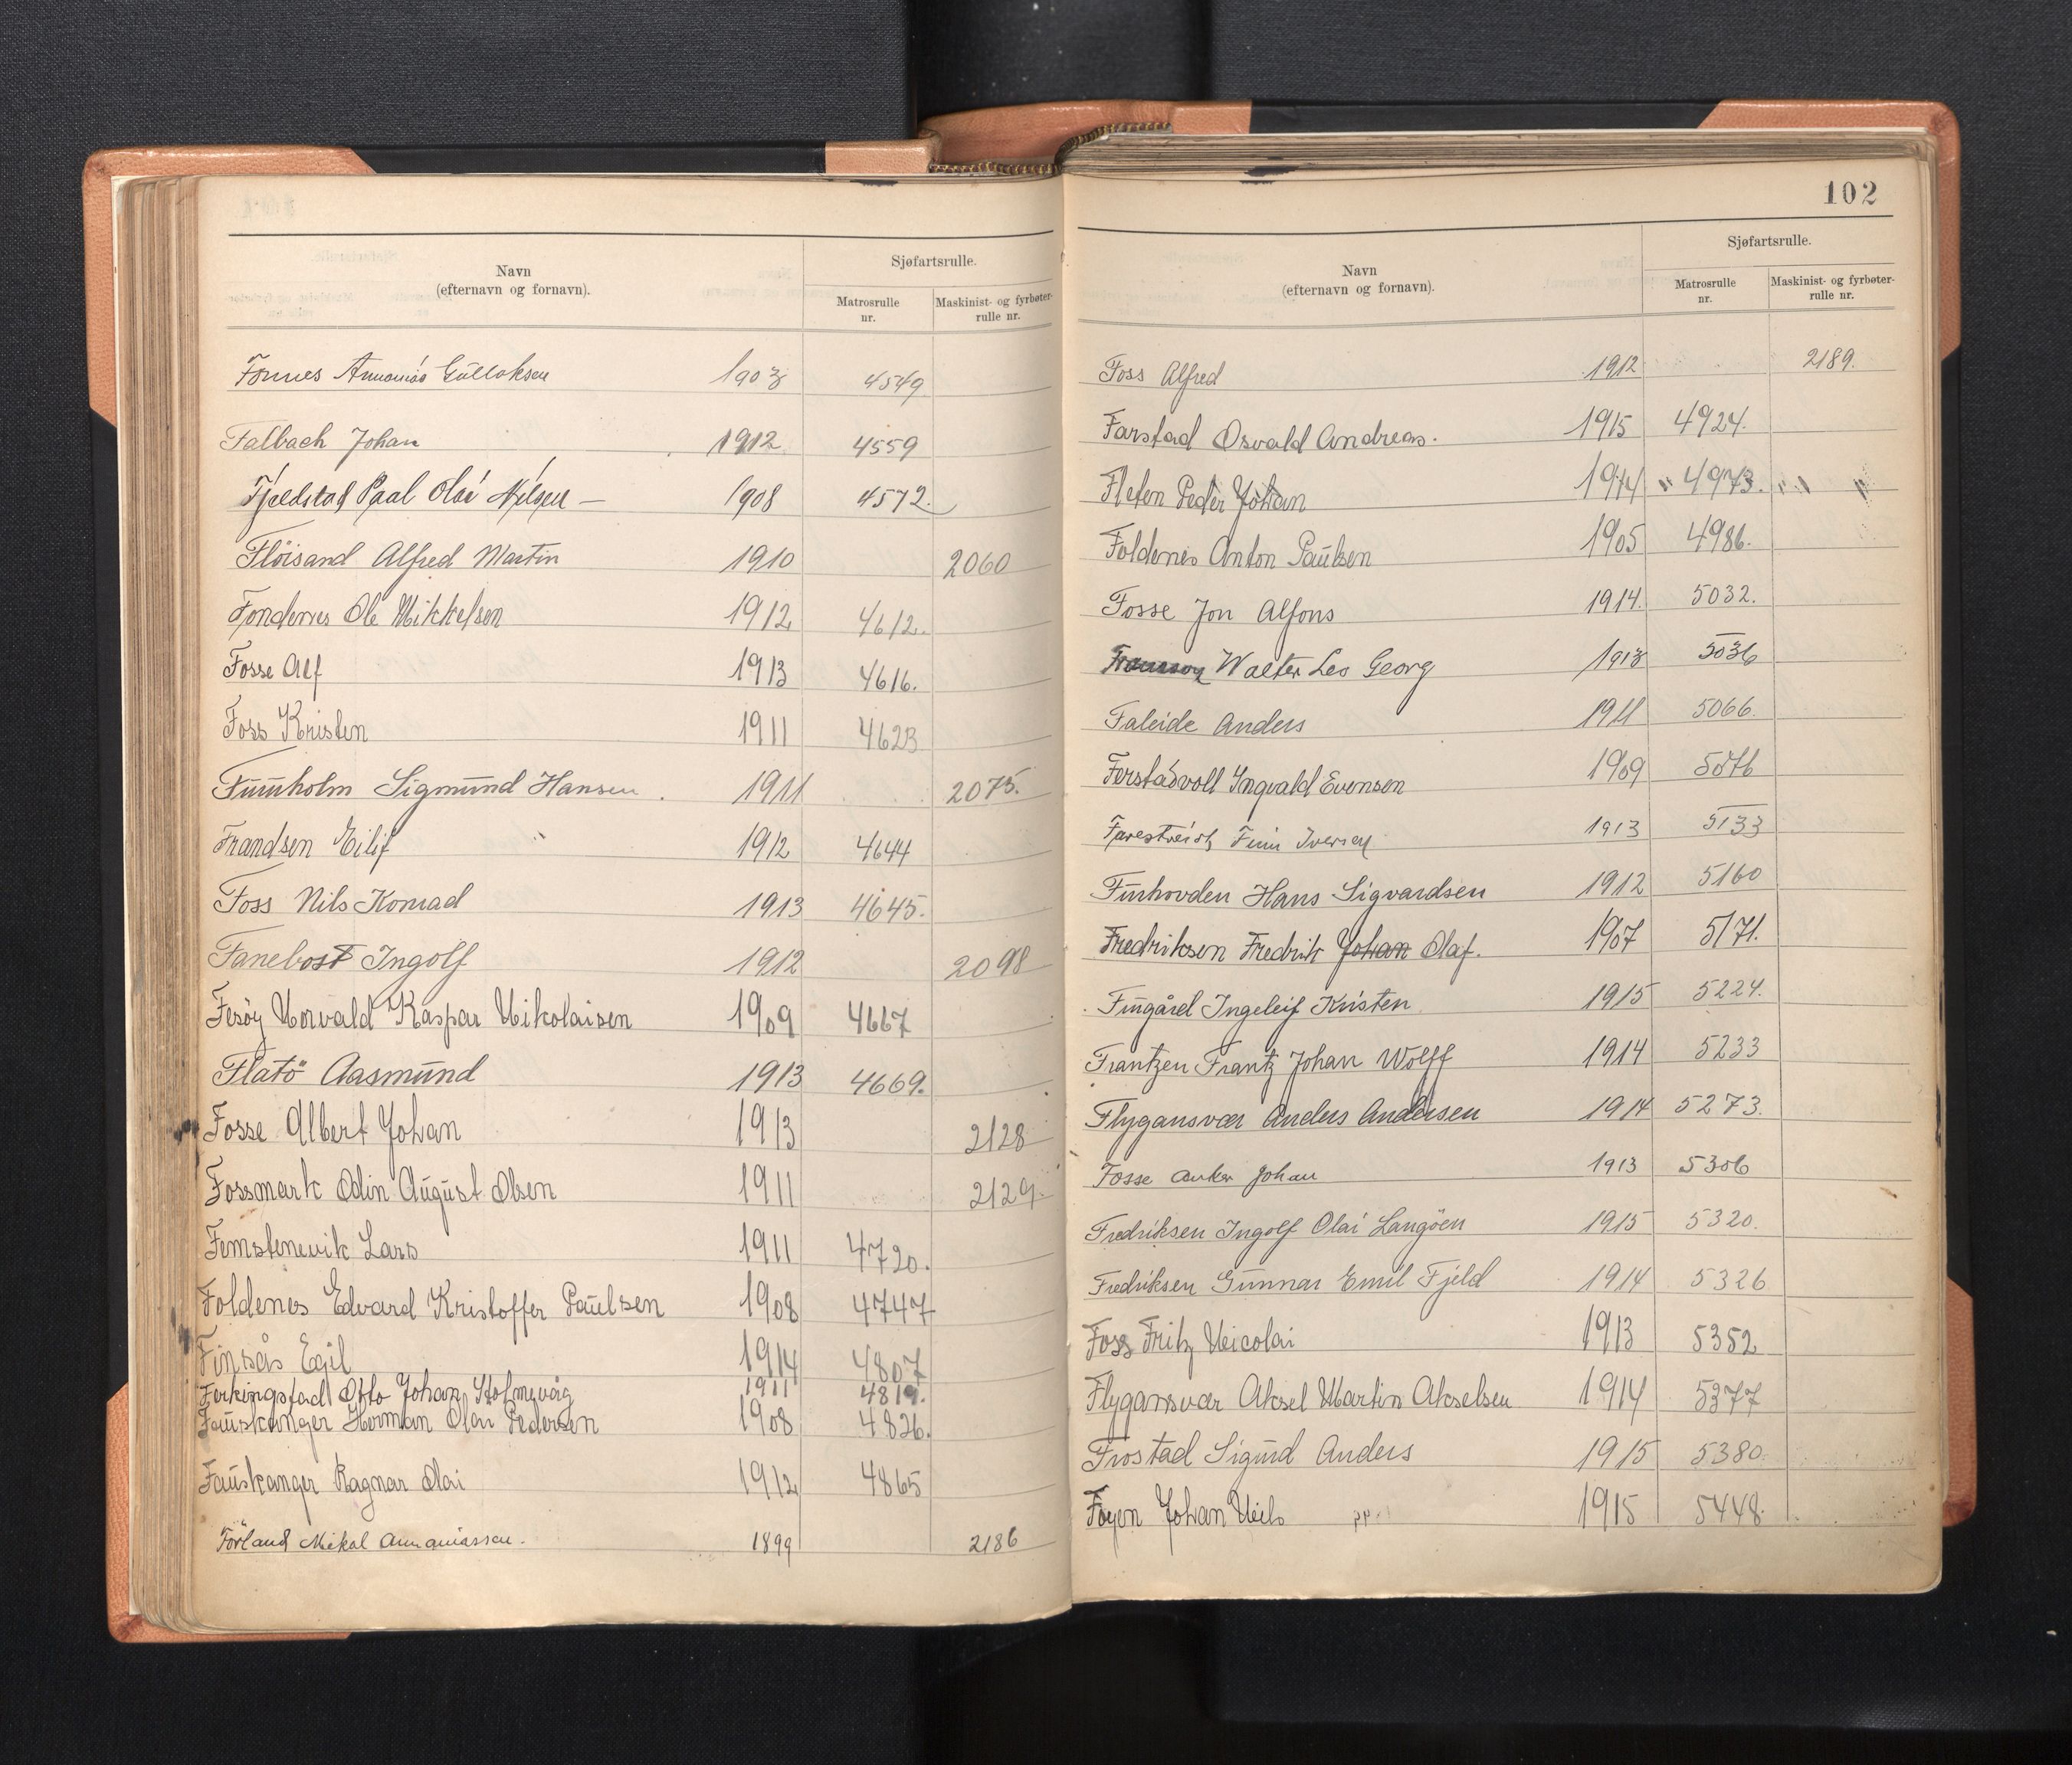 Sjøfartsrulle.
Navn
(efternavn og fornavn).
Matrosrulle
nr.
Maskinist- og fyrbøter-
rulle nr.
Fonnes Annanias Gulloksen 1903 4549
Falbach Johan 1912 4559
Fjeldstad Paal Olai Nilsen — 1908 4572.
Fløisand Alfred Martin 1910 2060
Fondenes Ole Mikkelsen 1912 4612.
Fosse Alf 1913 4616.
Foss Kristen 1911 4623
Furuholm Sigmund Hansen. 1911 2075.
Frandsen Eilif 1912 4644
Foss Nils Konrad 1913 4645.
Fanebost Ingolf 1912 2098
Fesöy Norvald Kaspar Nikolaisen 1909 4667
Flatö Aasmund 1913 4669.
Fosse Albert Johan 1913 2128
Fossmark Odin August Olsen 1911 2129.
Femstenevik Lars 1911 4720.
Foldenes Edvard Kristoffer Paulsen 1908 4747
Finsås Egil 1914 4807
Ferkingstad Otto Johan Holmevåg 1911 4819.
Fauskanger Herman Olai Pedersen 1908 4826.
Fauskanger Ragnar Olai 1912 4865
Förland Mikal Annaniassen. 1899 2186
102
Sjøfartsrulle.
Navn
(efternavn og fornavn).
Matrosrulle
nr.
Maskinist- og fyrbøter-
rulle nr.
Foss Alfred 1912 2189.
Farstad Osvald Andreas. 1915 4924.
Fleten Peder Johan 1914 4973.
Foldenes Anton Paulsen 1905 4986.
Fosse Jon Alfons 1914. 5032.
Walter Leo Georg 1913 5036
Faleide Anders 1911 5066.
Ferstadvoll Ingvald Evensen 1909 5076
Farestveit Finn Iversen 1913 5133
Finhovden Hans Sigvardsen 1912 5160
Fredriksen Fredrik Johan Olaf. 1907 5171.
Fingård Ingeleif Kristen 1915 5224.
Frantzen Frantz Johan Wolff 1914 5233
Flygansvær Anders Andersen 1914 5273.
Fosse Anker Johan 1913 5306
Fredriksen Ingolf Olai Langöen 1915 5320.
Fredriksen Gunnar Emil Fjeld 1914 5326
Foss Fritz Neicolai 1913 5352
Flygansvær Aksel Martin Akselsen 1914 5377
Frostad Sigurd Anders 1915 5380.
Foyen Johan Neils 1915 5448.